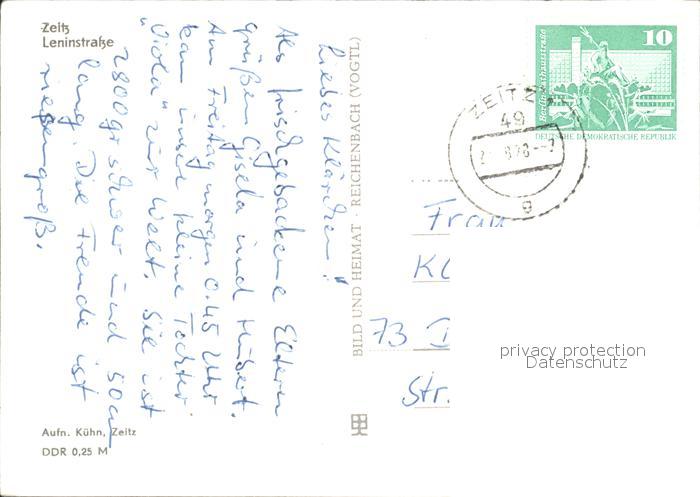 Zeitz
Leninstraße
Liebes Klärchen!
Als frischgebackene Eltern
grüßen Gisela und Hubert.
Am Freitag morgen 0.45 Uhr
kam unser kleine Tochter
"Viola" zur Welt. Sie ist
2800 gr schwer und 50 cm
lang. Die Freude ist
riesengroß.
Aufn. Kühn, Zeitz
DDR 0,25 M
BILD UND HEIMAT · REICHENBACH (VOGTL)
10
Berlin, Rathausstraße
DEUTSCHE DEMOKRATISCHE REPUBLIK
ZEITZ
49
g
Frau
Kl
73
Str.
privacy protection
Datenschutz